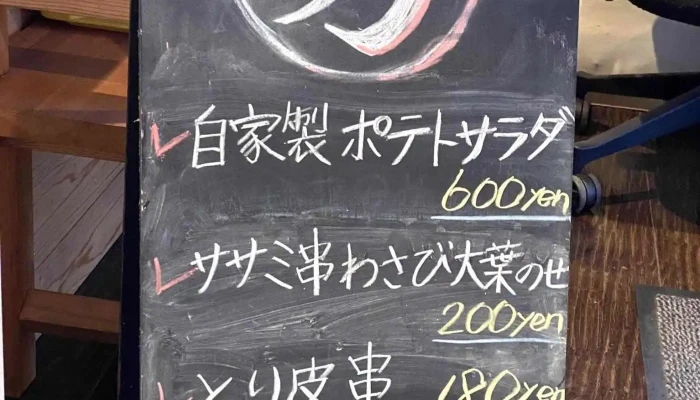 自家製 ポテトサラダ
600yen
ササミ串わさび大葉のせ
200yen
とり皮串 180yen